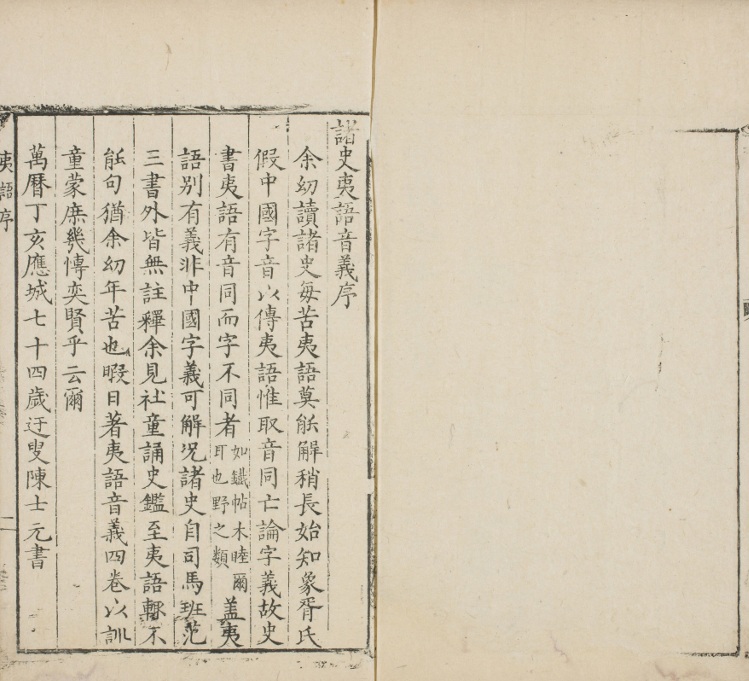 諸史夷語音義序
余幼讀諸史每苦夷語莫能解稍長始知象胥氏
假中國字音以傳夷語惟取音同亡論字義故史
書夷語有音同而字不同者如鐵帖木睦爾耳也野之類蓋夷
語别有義非中國字義可解况諸史自司馬班范
三書外皆無註釋余見社童誦史鑑至夷語輙不
能句猶余幼年苦也暇日著夷語音義四卷以訓
童蒙庶幾愽奕賢乎云爾
萬曆丁亥應城七十四歲迂叟陳士元書
夷語序